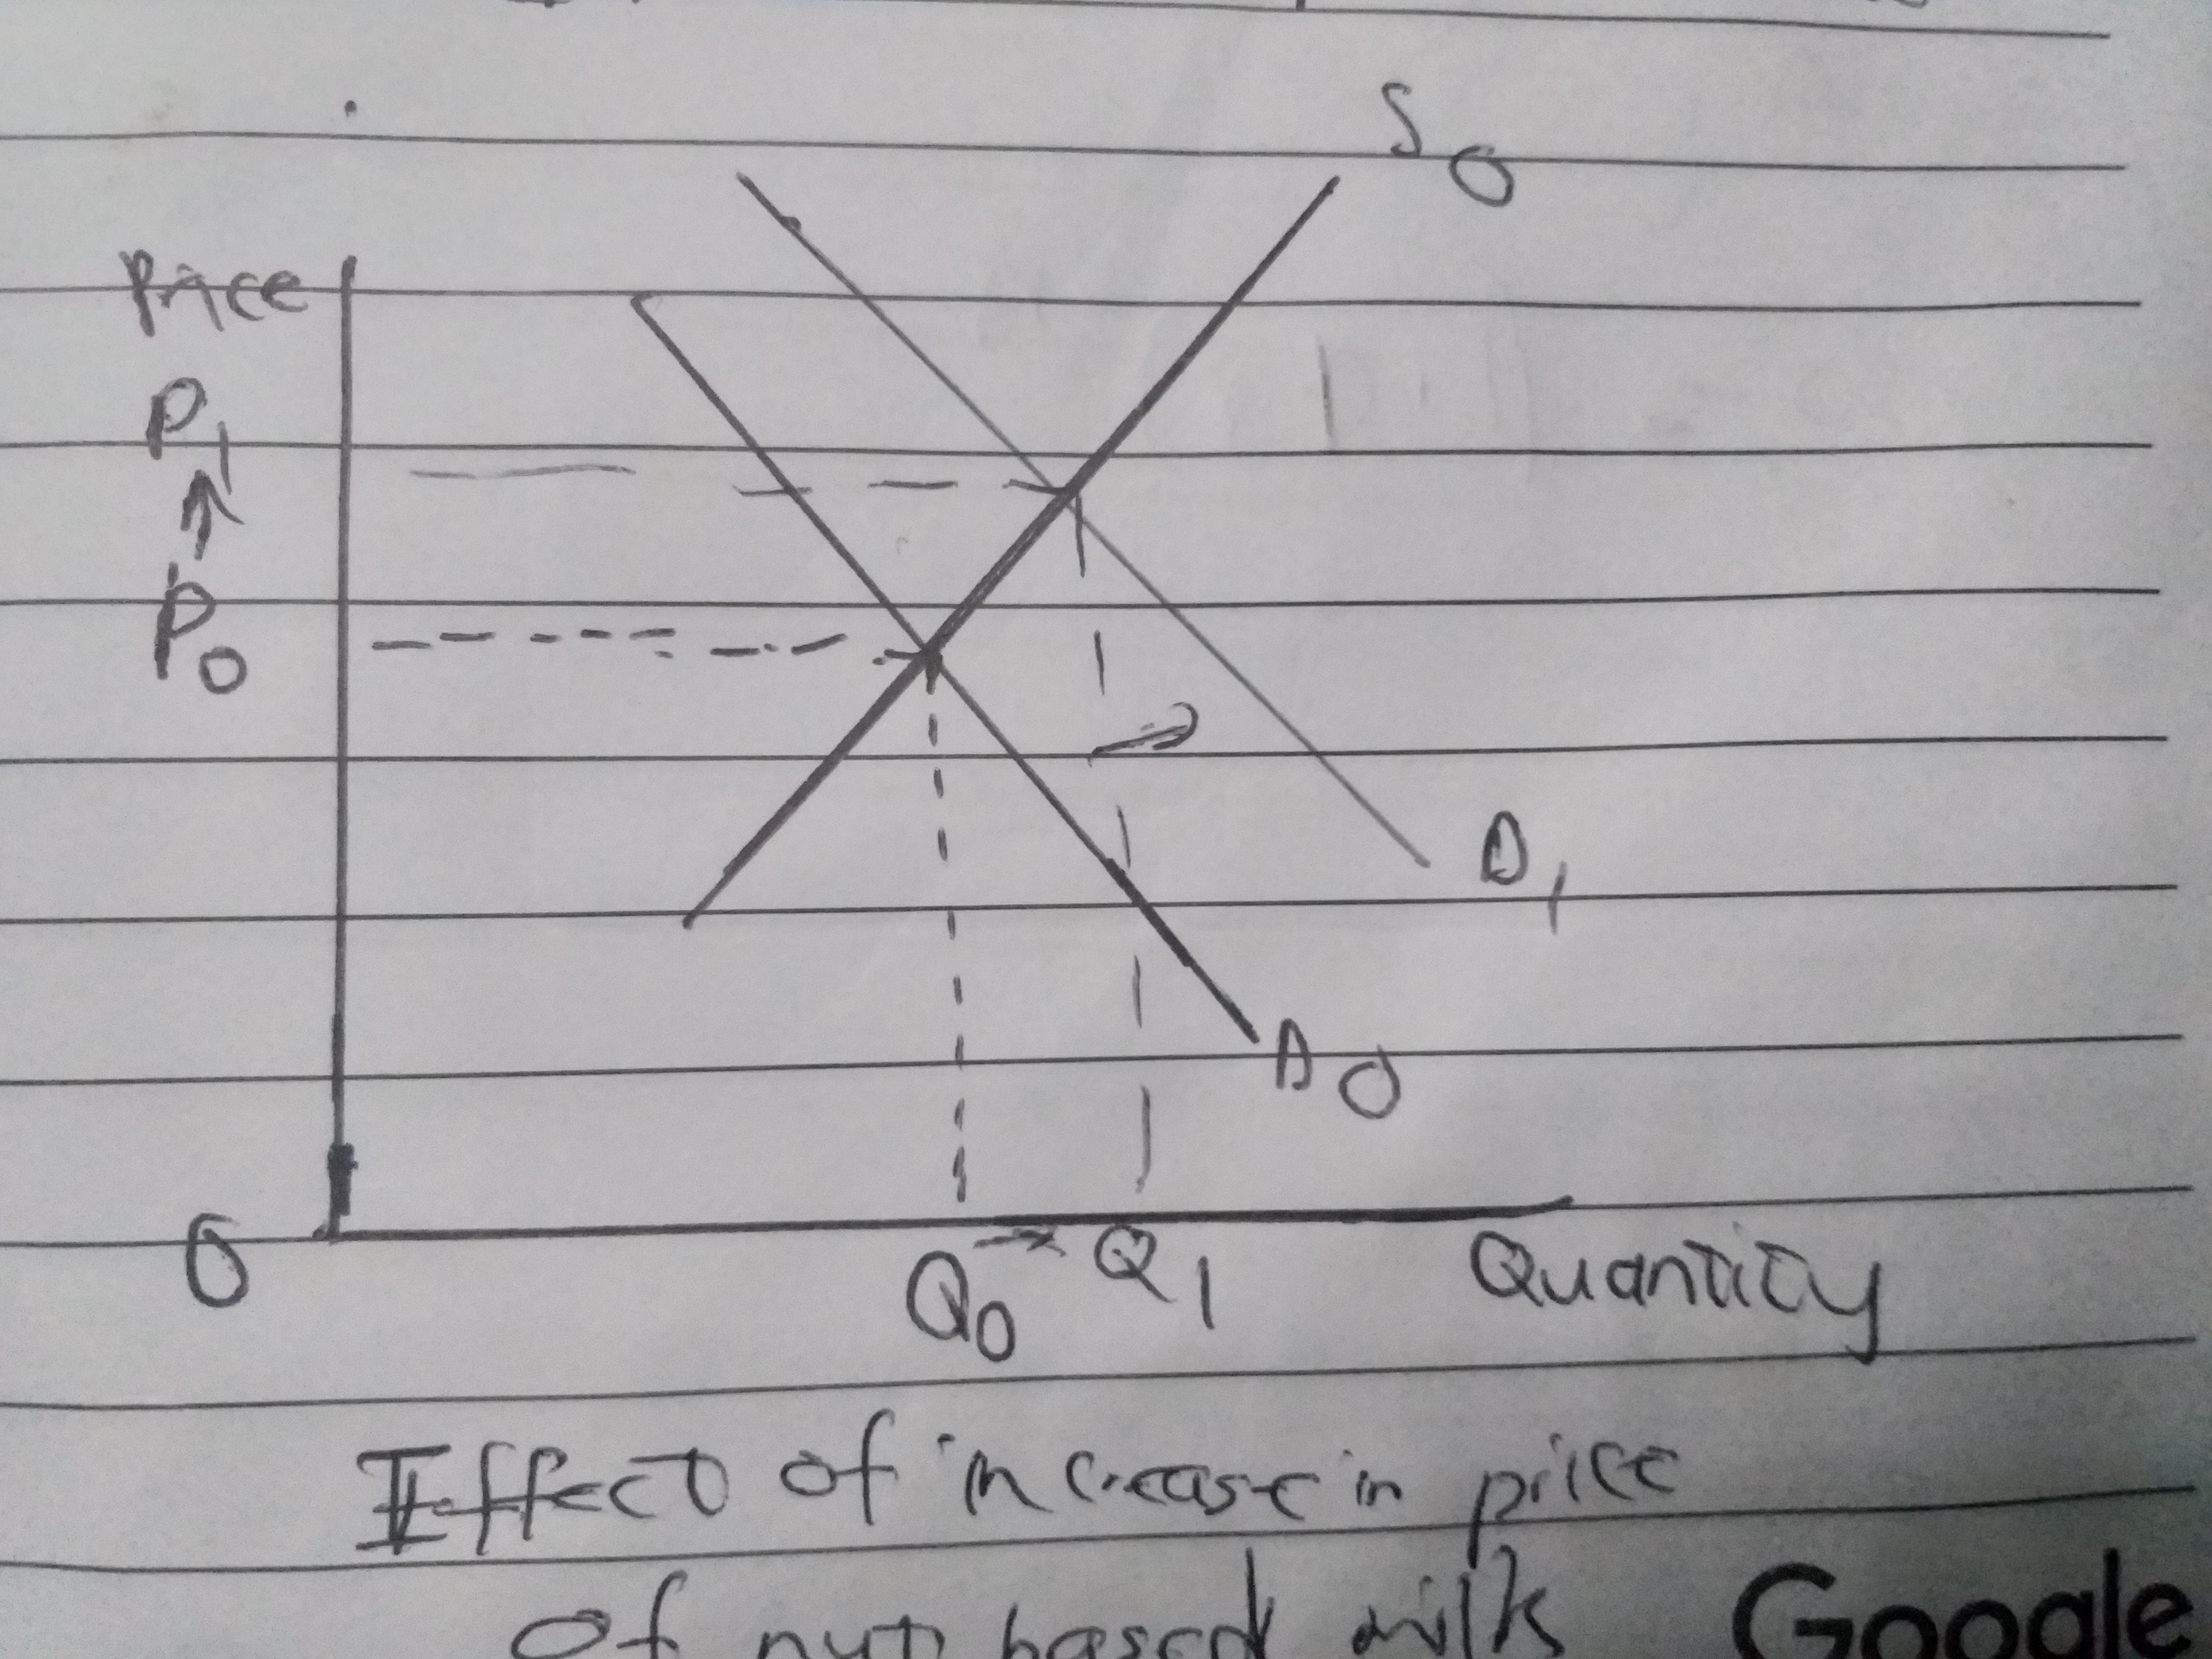 S0
Price
P1
P0
D1
D0
0
Q0 Q1 Quantity
Effect of increase in price
of nut based milk
Google